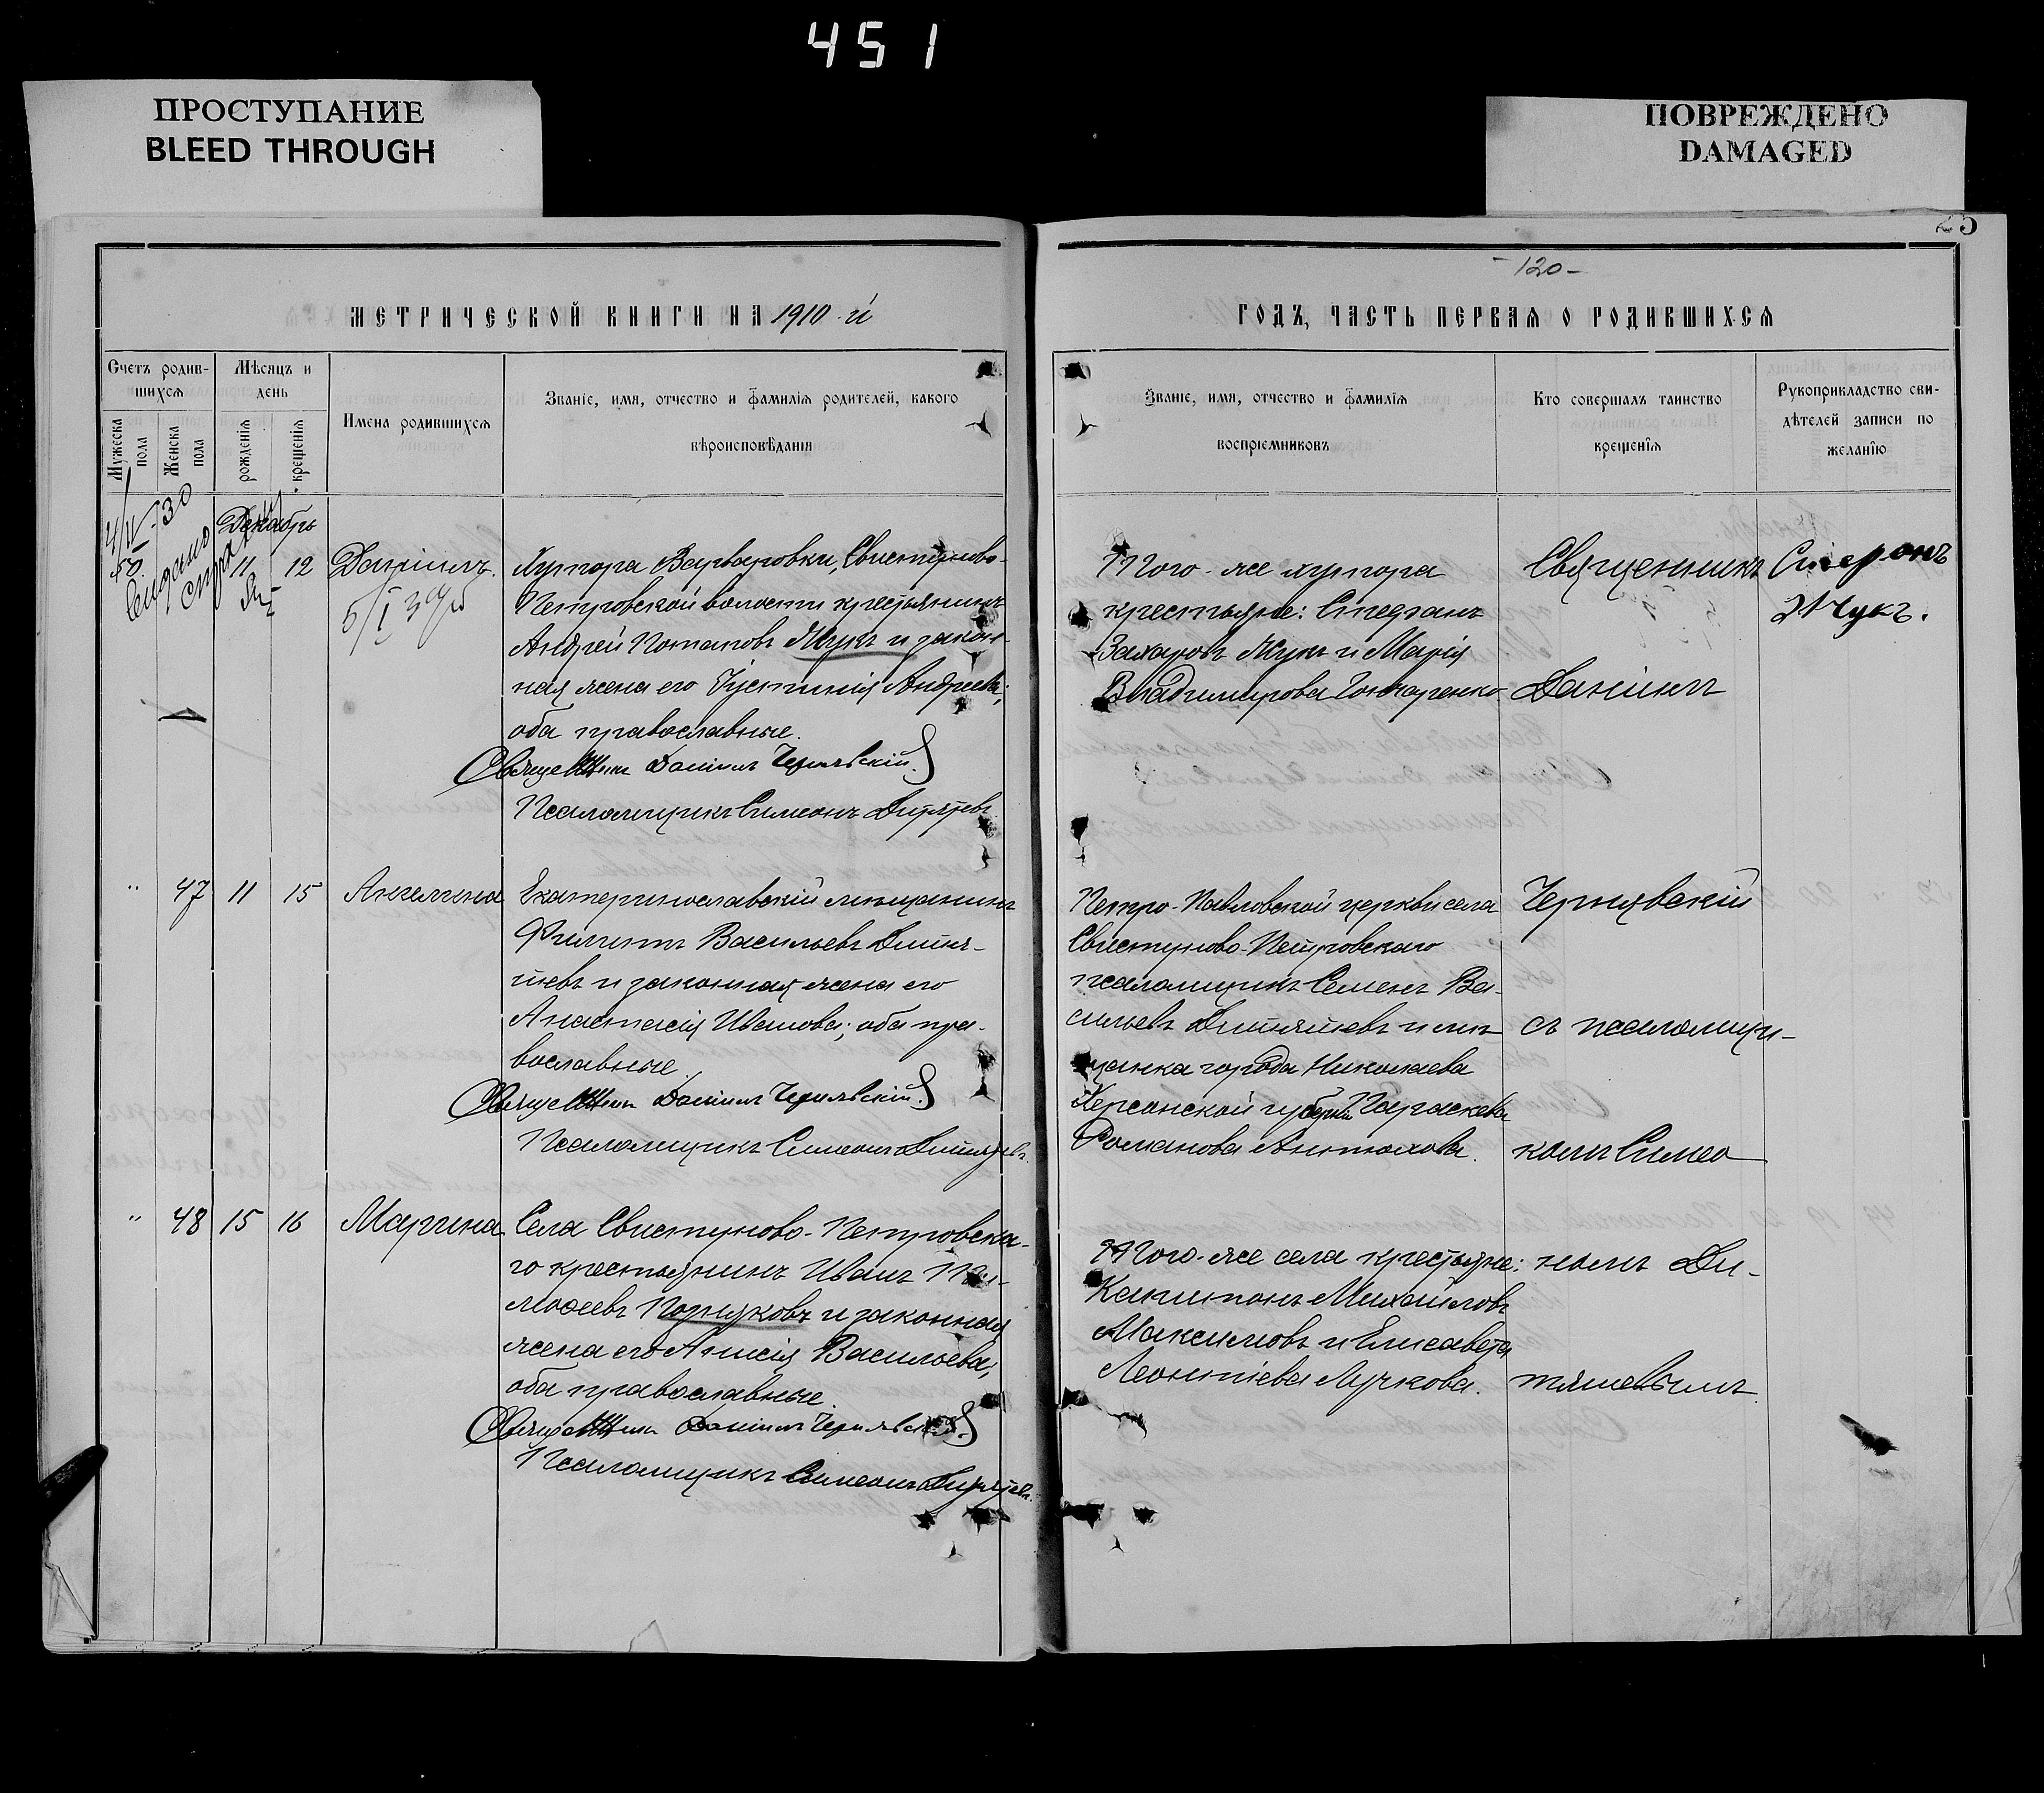 451
ПРОСТУПАНИЕ
BLEED THROUGH
ПОВРЕЖДЕНО
DAMAGED
25
-120-
МЕТРИЧЕСКОЙ КНИГИ НА 1910 й
ГОДЪ, ЧАСТЬ ПЕРВАЯ О РОДИВШИХСЯ
Счетъ родив-
шихся
Мужеска пола
Женска пола
Мѣсяцъ и
день
рожденія
крещенія
Имена родившихся
Званіе, имя, отчество и фамилія родителей, какого
вѣроисповѣданія
Званіе, имя, отчество и фамилія
воспріемниковъ
Кто совершалъ таинство
крещенія
Рукоприкладство сви-
дѣтелей записи по
желанію
Декабрь
11 12 Даніилъ.
Хутора Варваровки, Свистуново-
Петровской волости крестьянинъ
Андрей Потаповъ Жукъ и закон-
ная жена его Іустинія Андреева;
оба православные.
Священникъ Даніилъ Чернявскій.
Псаломщикъ Симеонъ Дитятевъ.
Того-же хутора
крестьяне: Стефанъ
Захаровъ Жукъ и Марія
Владимирова Гончаренко
Священникъ
Даніилъ
" 47 11 15 Ангелина
Екатеринославскій мѣщанинъ
Филиппъ Васильевъ Дитя-
тевъ и законная жена его
Анастасія Иванова; оба пра-
вославные.
Священникъ Даніилъ Чернявскій.
Псаломщикъ Симеонъ Дитятевъ.
Петро-Павловской церкви села
Свистуново-Петровскаго
псаломщикъ Семенъ Ва-
сильевъ Дитятевъ и мѣ-
щанка города Николаева
Херсонской губерніи Параскева
Романова
Чернявскій
съ псаломщи-
комъ Симео
" 48 15 16 Марина
Села Свистуново-Петровска-
го крестьянинъ Иванъ Ти-
мофеевъ и законная
жена его Анисія Васильева;
оба православные.
Священникъ Даніилъ Чернявскій.
Псаломщикъ Симеонъ Дитятевъ.
Того-же села крестьяне:
Капитонъ Михайловъ
Максимовъ и Елисавета
Леонтіева Лучкова.
номъ Ди-
тятевымъ